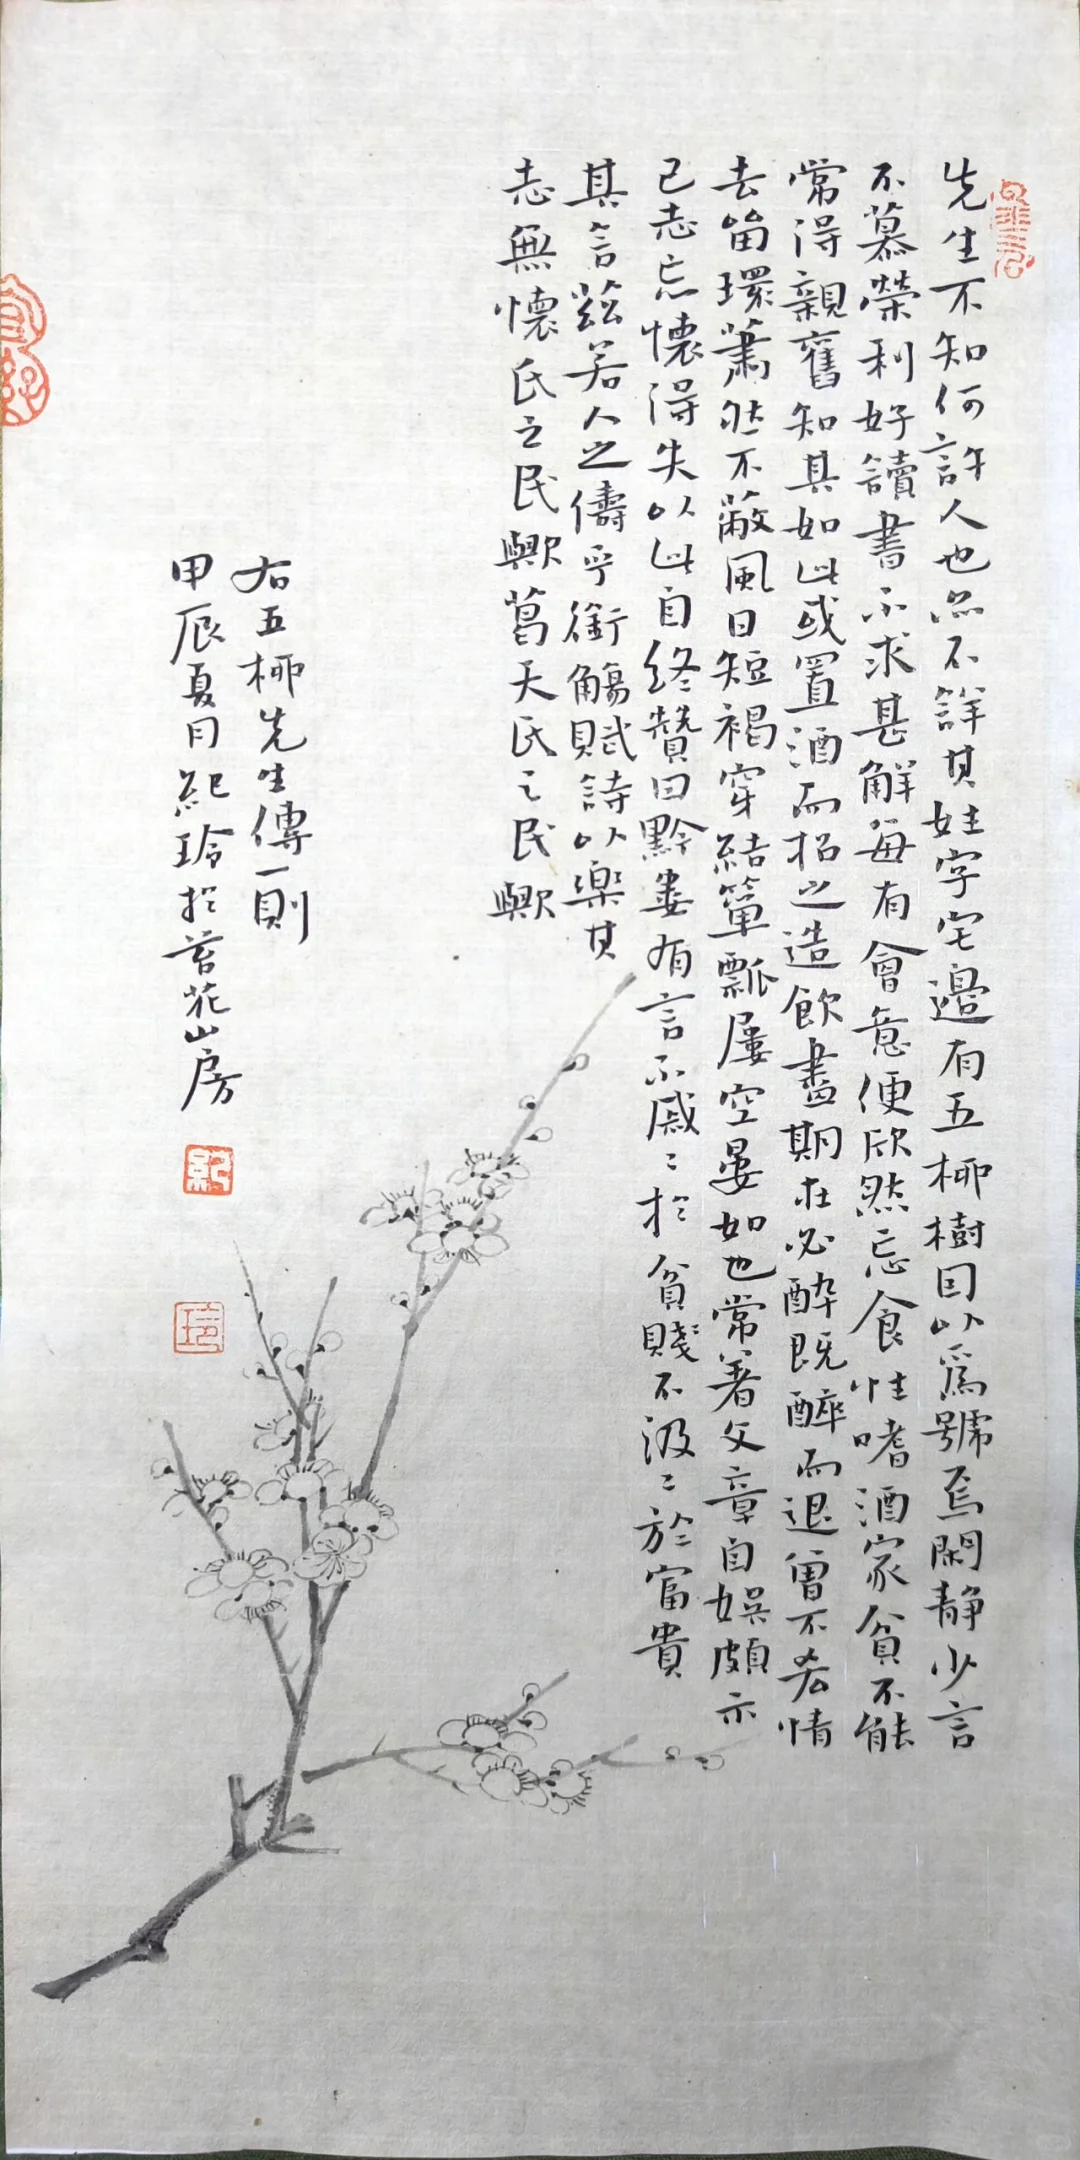 先生不知何許人也亦不詳其姓字宅邊有五柳樹因以爲號焉閑靜少言
不慕榮利好讀書不求甚解每有會意便欣然忘食性嗜酒家貧不能
常得親舊知其如此或置酒而招之造飲盡期在必醉既醉而退曾不吝情
去留環蕭然不蔽風日短褐穿結簞瓢屢空晏如也常著文章自娛頗示
己志忘懷得失以此自終贊曰黔婁有言不戚〻於貧賤不汲〻於富貴
其言茲若人之儔乎銜觴賦詩以樂其
志無懷氏之民歟葛天氏之民歟
右五柳先生傳一則
甲辰夏月紀玲於苔花山房
紀
玲